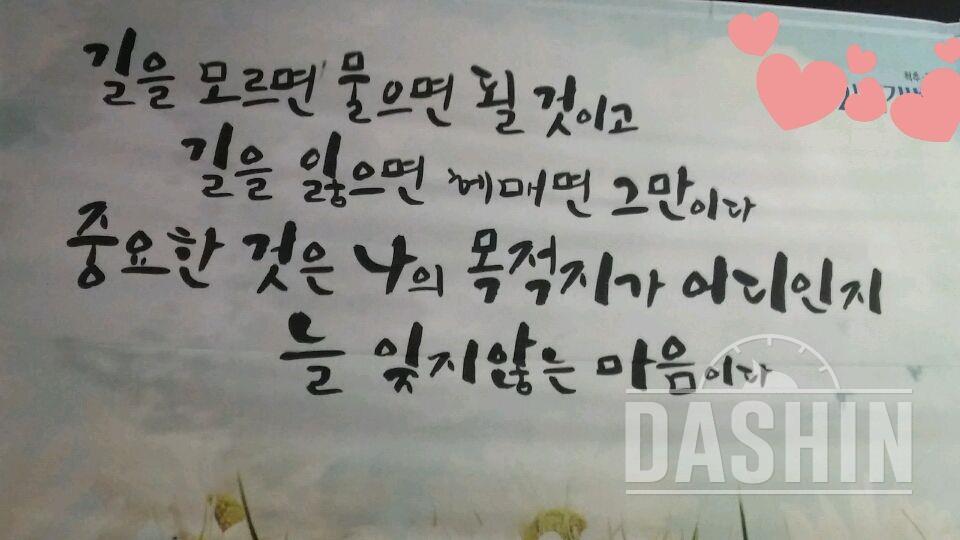 길을 모르면 물으면 될 것이고
길을 잃으면 헤매면 그만이다
중요한 것은 나의 목적지가 어디인지
늘 잊지않는 마음이다
DASHIN